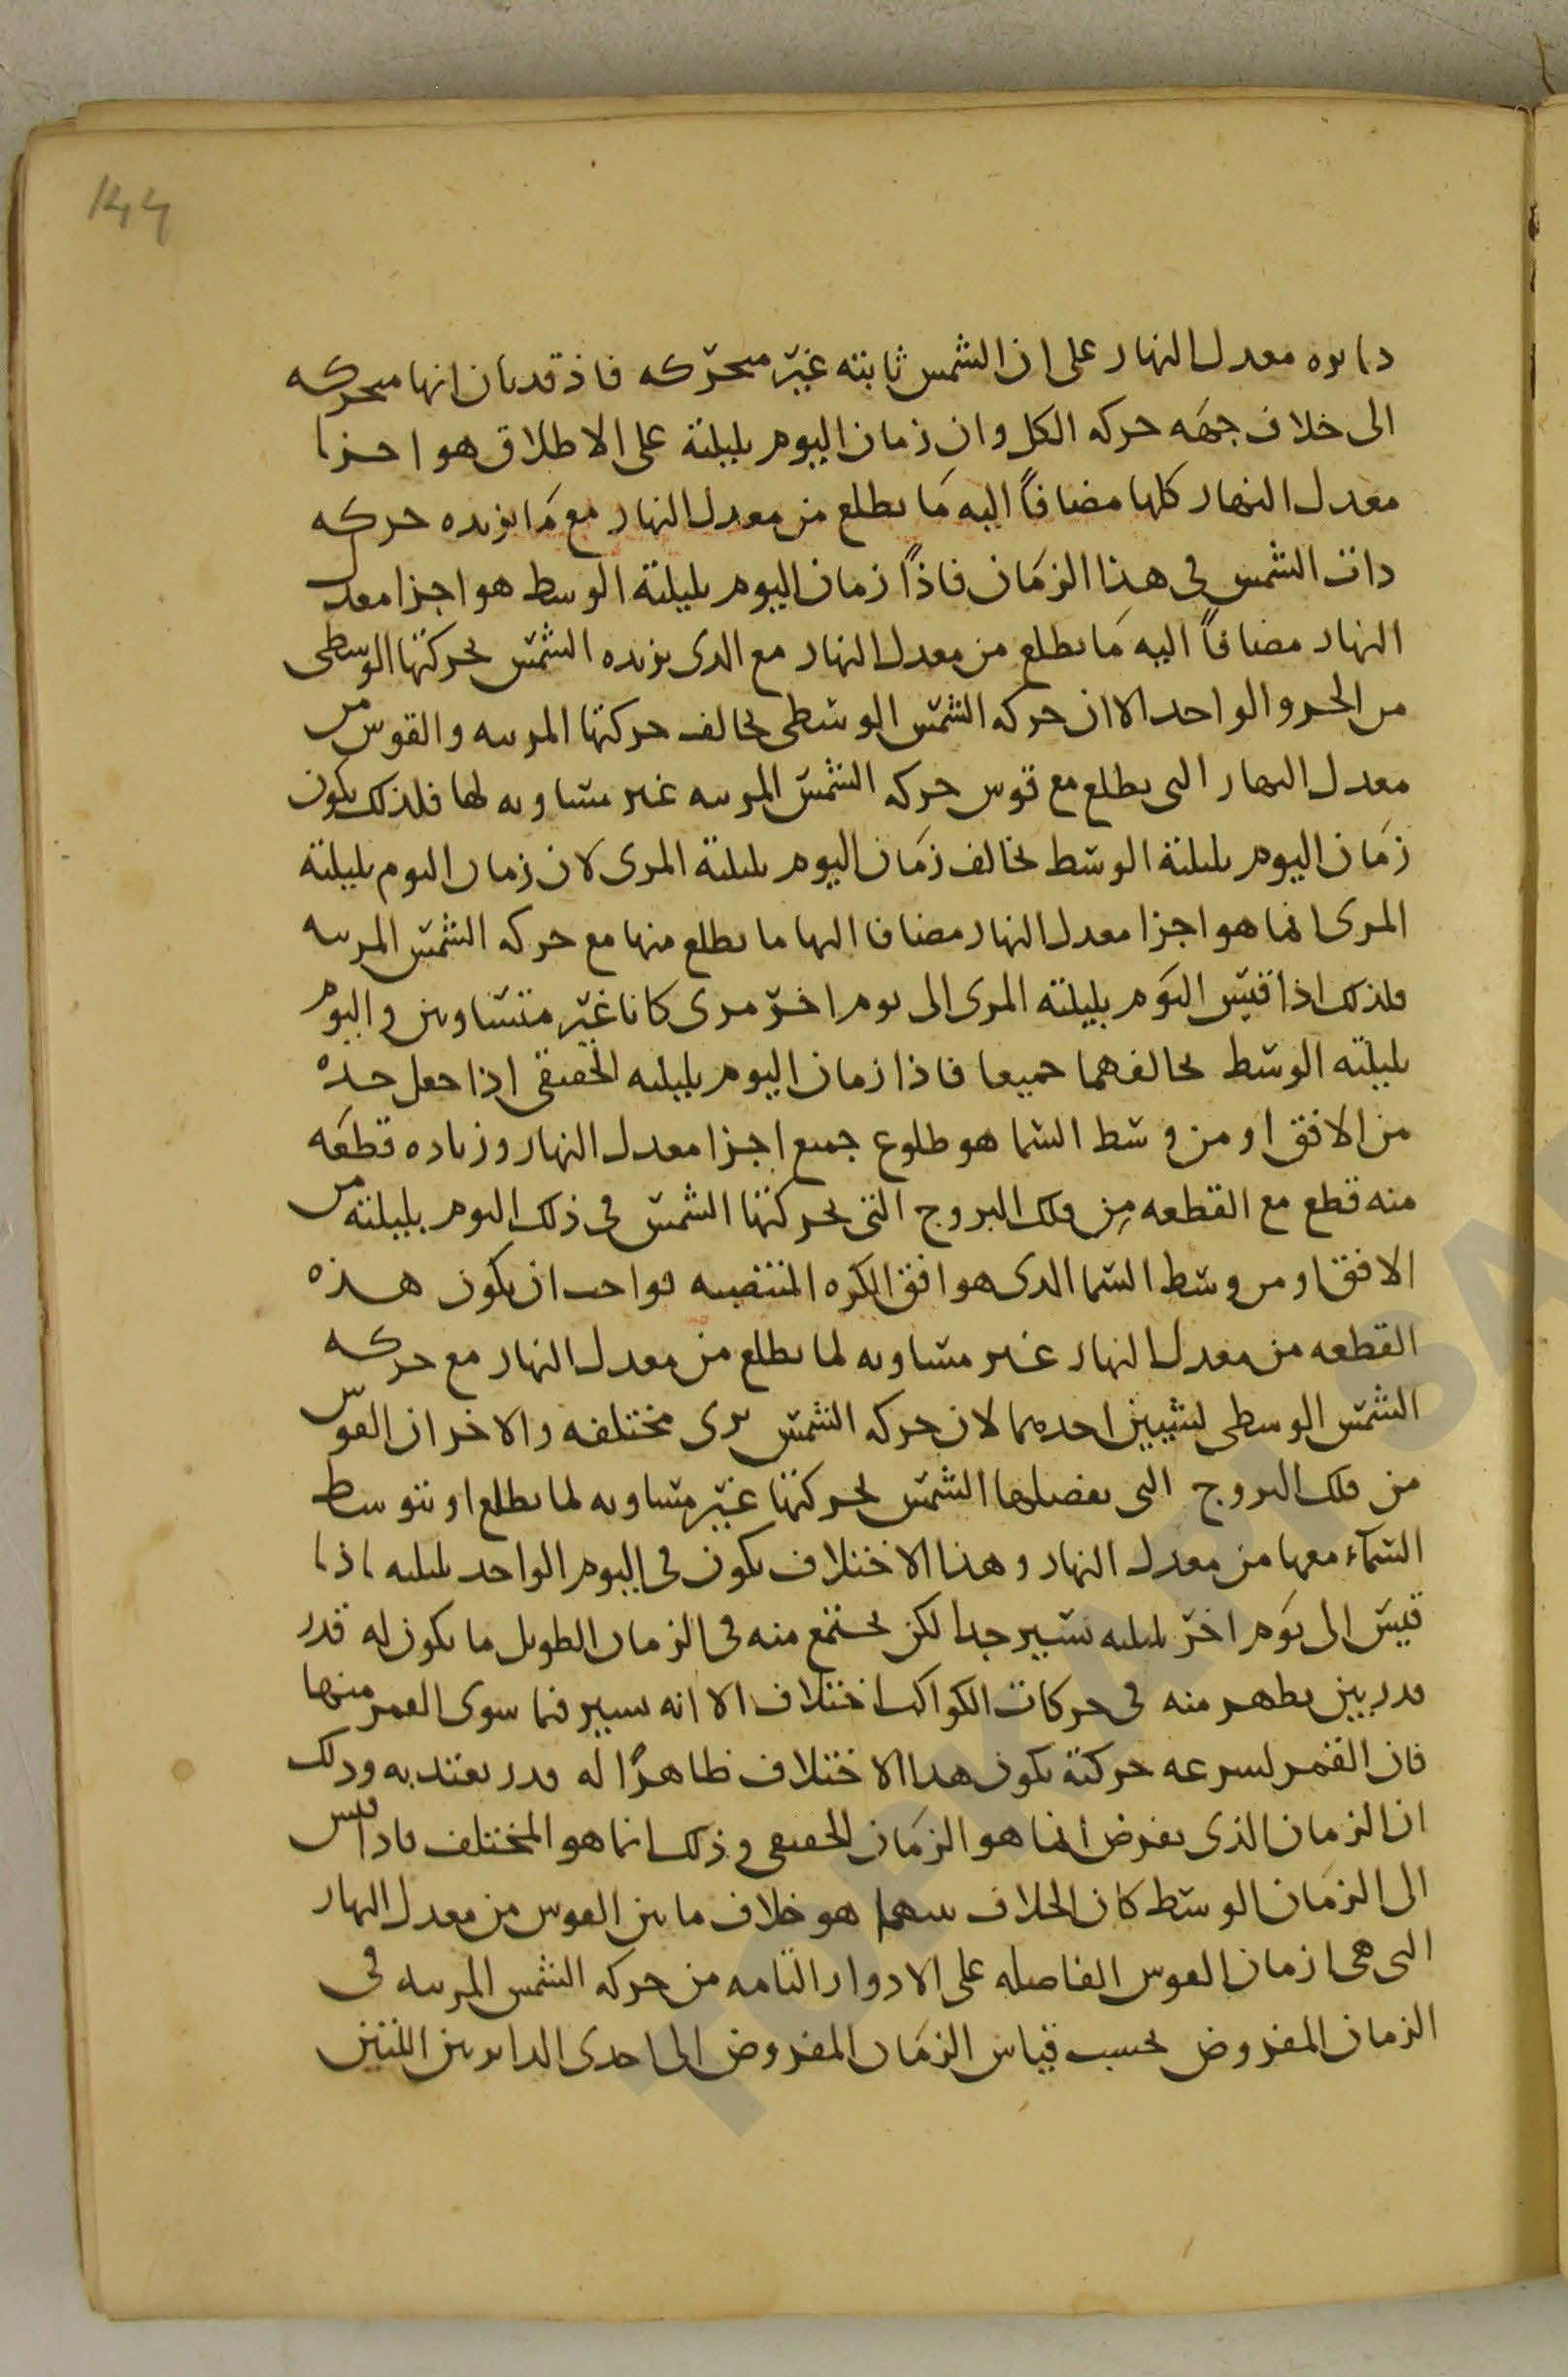 144
دايره معدل النهار على ان الشمس ثابته غير متحركه فاذ قد بان انها متحركه
الى خلاف جهه حركه الكل وان زمان اليوم بليلته على الاطلاق هو اجزا
معدل النهار كلها مضافاً اليه ما يطلع من معدل النهار مع ما يزيده حركه
ذات الشمس في هذا الزمان فاذاً زمان اليوم بليلته الوسط هو اجزا معدل
النهار مضافاً اليه ما يطلع من معدل النهار مع الذى يزيده الشمس بحركتها الوسطى
من الجزو الواحد الا ان حركه الشمس الوسطى يخالف حركتها المريه والقوس من
معدل النهار التى يطلع مع قوس حركه الشمس المريه غير مساويه لها فلذلك يكون
زمان اليوم بليلته الوسط يخالف زمان اليوم بليلته المرى لان زمان اليوم بليلته
المرى انما هو اجزا معدل النهار مضافا اليها ما يطلع منها مع حركه الشمس المريه
ولذلك اذا قيس اليوم بليلته المرى الى يوم اخر مرى كانا غير متساويين واليوم
بليلته الوسط يخالفهما جميعا فاذا زمان اليوم بليلته الحقيقى اذا جعل حده
من الافق او من وسط السما هو طلوع جميع اجزا معدل النهار وزياده قطعه
منه قطع مع القطعه من فلك البروج التى بحركتها الشمس في ذلك اليوم بليلته من
الافق او من وسط السما الذى هو افق الكره المنتصبه فواجب ان يكون هذه
القطعه من معدل النهار غير مساويه لما يطلع من معدل النهار مع حركه
الشمس الوسطى لشيين احدهما لان حركه الشمس ترى مختلفه والاخر ان القوس
من فلك البروج التى يفصلها الشمس بحركتها غير مساويه لما يطلع او يتوسط
السماء معها من معدل النهار وهذا الاختلاف يكون في اليوم الواحد بليلته اذا
قيس الى يوم اخر بليلته يسير جدا لكن يجتمع منه في الزمان الطويل ما يكون له قدر
قدر بين يظهر منه في حركات الكواكب اختلاف الا انه يسير فيما سوى القمر منها
فان القمر لسرعه حركته يكون هذا الاختلاف ظاهرًا له قدر يعتد به وذلك
ان الزمان الذى يفرض انما هو الزمان الحقيقى وذلك انما هو المختلف فاذا قيس
الى الزمان الوسط كان الخلاف بينهما هو خلاف ما بين القوس من معدل النهار
التى هى ازمان القوس الفاصله على الادوار التامه من حركه الشمس المريه في
الزمان المفروض بحسب قياس الزمان المفروض الى احدى الدايرتين اللتين